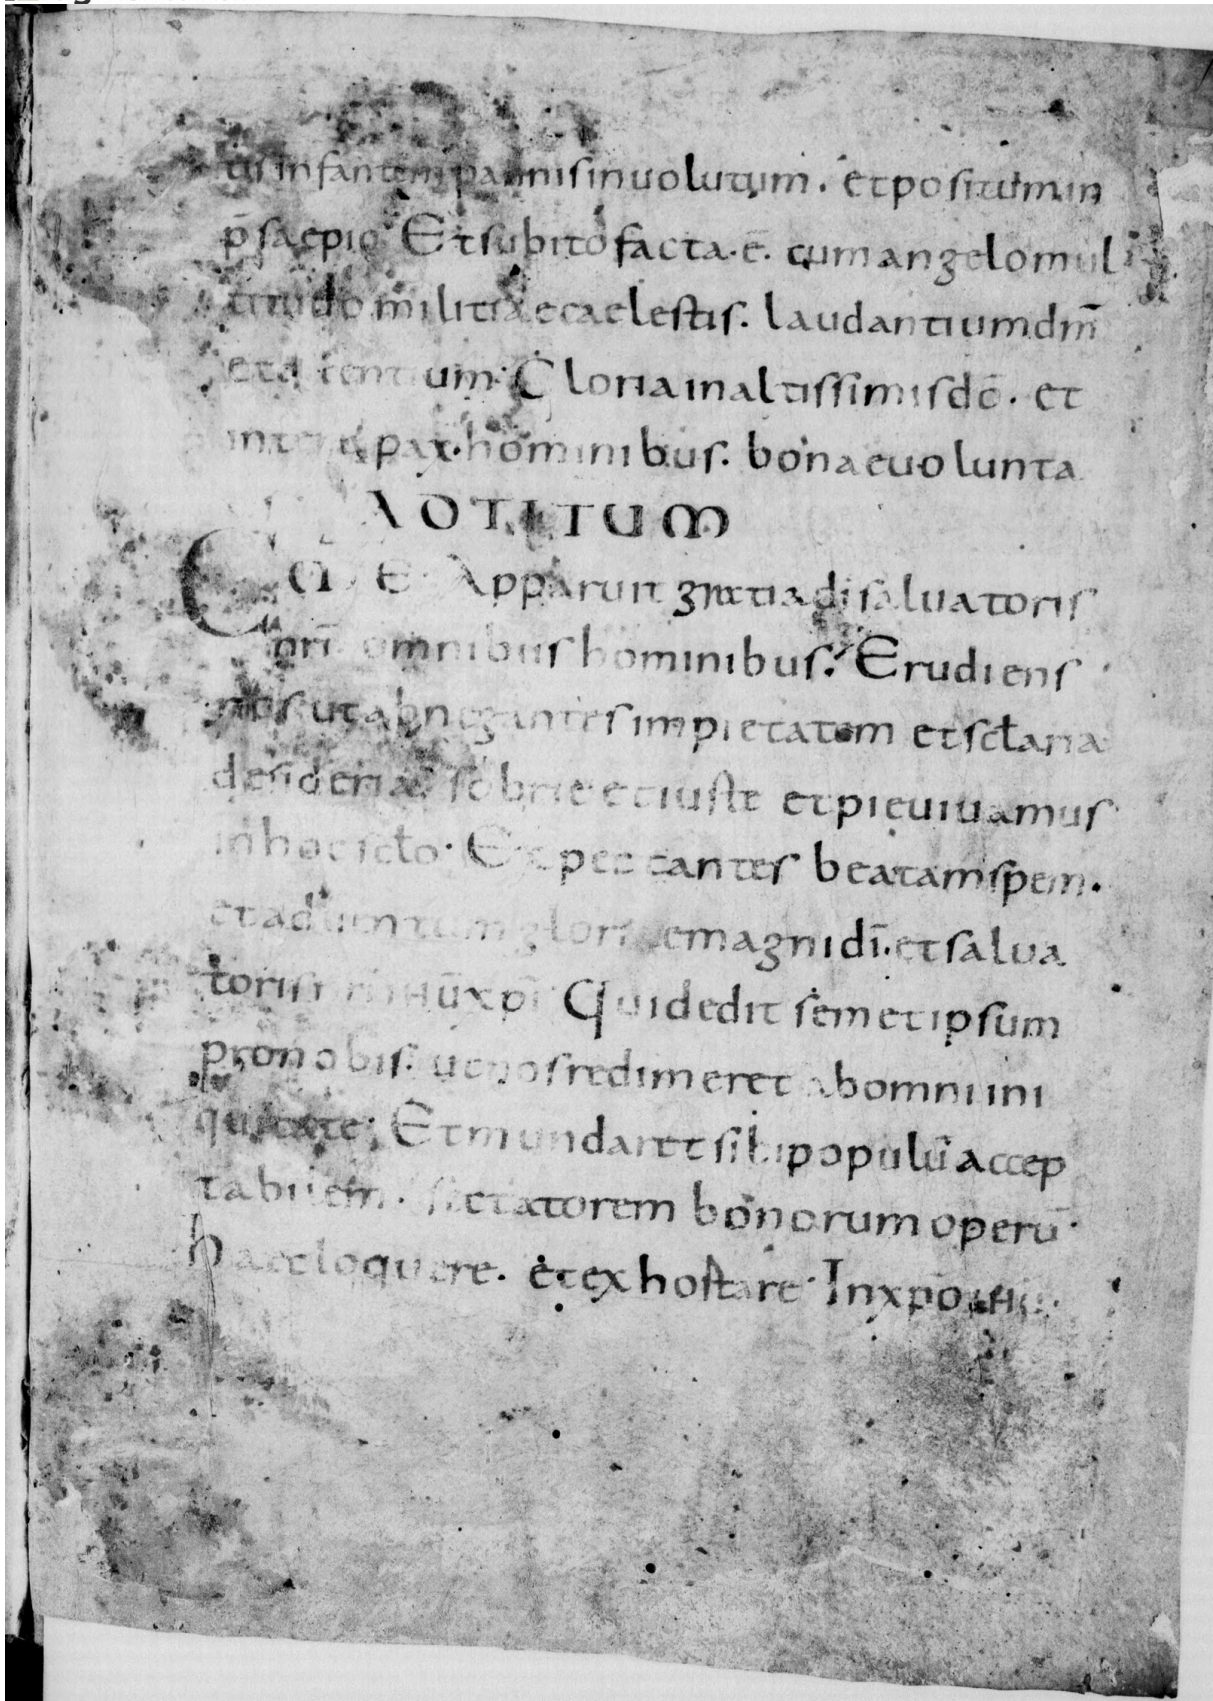 tis infantem pannis inuolutum. et positum in
p̄saepio Et subito facta. ē. cum angelo mul
titudo militiae caelestis. laudantium dm̄
et dicentium. Gloria in altissimis dō. et
in terra pax. hominibus. bonae uolunta
AD TITUM
Apparuit gratia di saluatoris
nrī omnibus hominibus. Erudiens
nos ut abnegantes impietatem et scłaria
desideria sobrie et iuste et pie uiuamus
in hoc scło. Expectantes beatam spem.
et aduentum gloriae magni dī. et salua
toris nri ihū xpī Qui dedit semetipsum
pro nobis. ut nos redimeret ab omni ini
quitate; Et mundaret sibi populū accep
tabilem. sectatorem bonorum operū.
haec loquere. et exhortare. In xpo ihu.